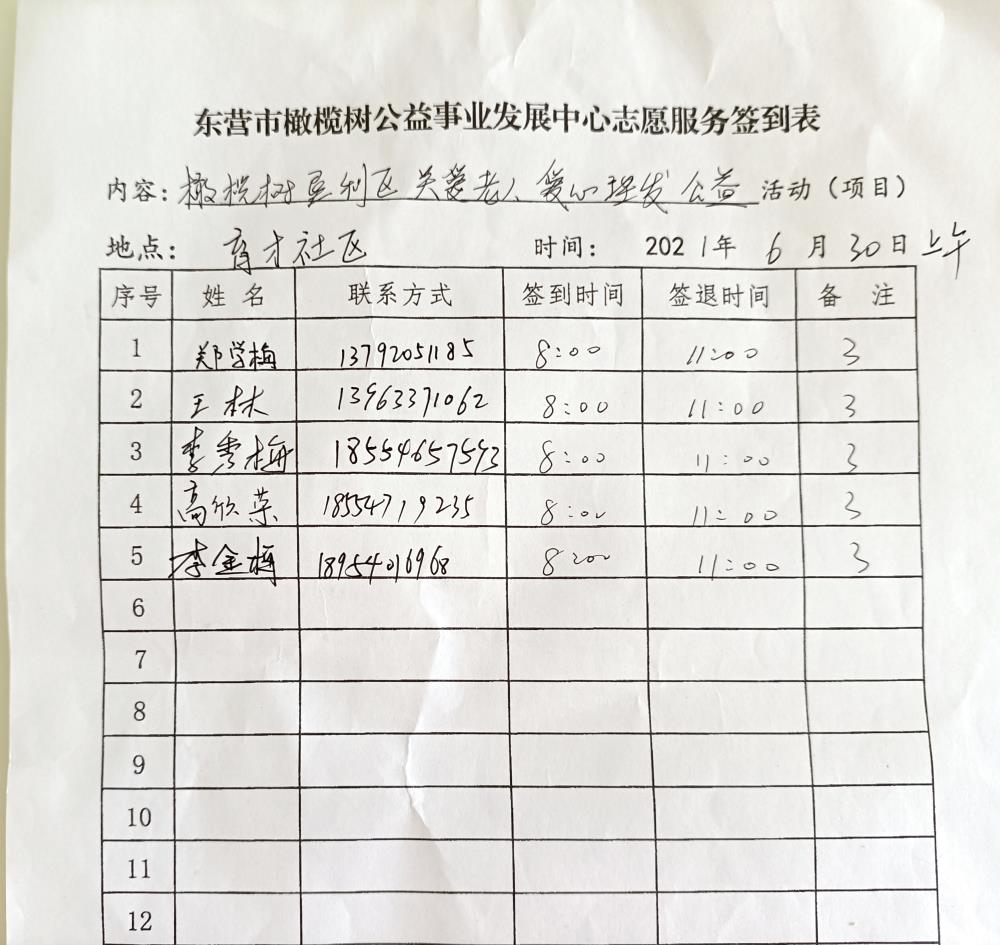 东营市橄榄树公益事业发展中心志愿服务签到表
内容：橄榄树垦利区关爱老人爱心理发公益活动（项目）
地点：育才社区 时间：2021年6月30日上午
序号 姓名 联系方式 签到时间 签退时间 备注
1 郑学梅 13792051185 8:00 11:00 3
2 王林 13963371062 8:00 11:00 3
3 李秀梅 18554657593 8:00 11:00 3
4 高欣荣 18554719235 8:00 11:00 3
5 李金梅 18954016968 8:00 11:00 3
6
7
8
9
10
11
12